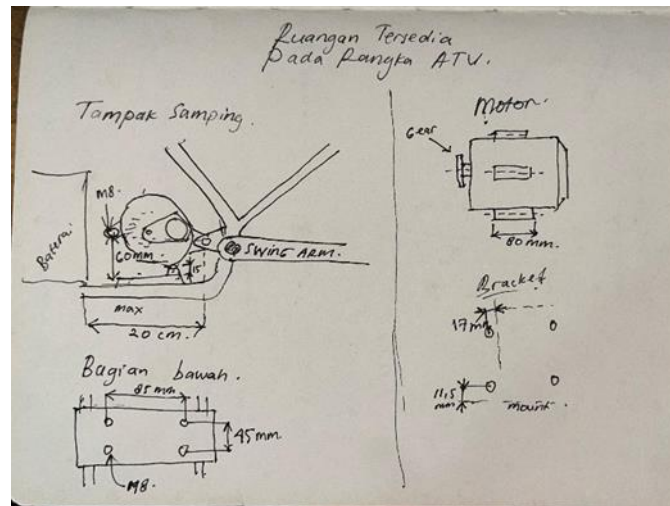 Ruangan Tersedia
Pada Rangka ATV.
Tampak Samping.
M8.
Baterai
60mm.
15
SWING ARM.
max
20 cm.
Bagian bawah.
85 mm
45mm.
M8.
Motor.
Gear
80mm.
Bracket
17 mm
11,5
mm
mount.